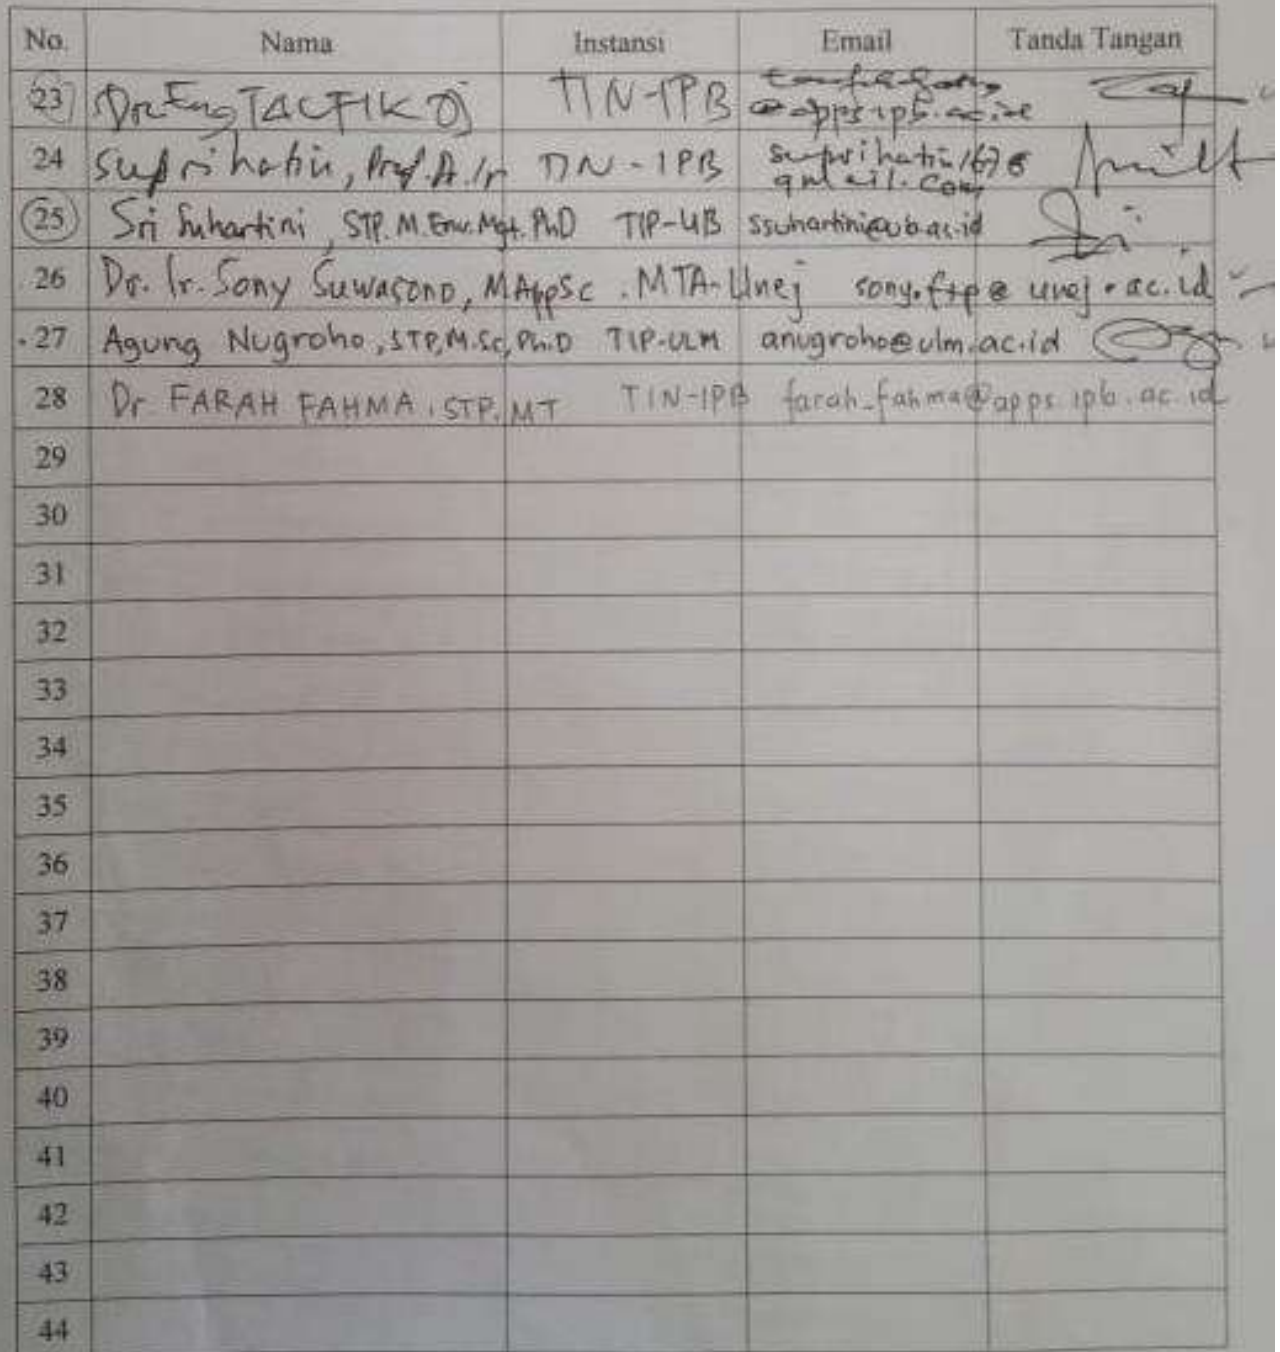 No. Nama Instansi Email Tanda Tangan
23 Dr. Eng TAUFIK TIN-IPB
@apps.ipb.ac.id
24 Suprihatin, Prof. Dr. Ir TIN-IPB
gmail.com
25 Sri Suhartini, STP. M.Env.Mgt. PhD TIP-UB ssuhartini@ub.ac.id
26 Dr. Ir. Sony Suwasono, MAppSc. MTA-Unej sony.ftp@unej.ac.id
27 Agung Nugroho, STP, M.Sc, Ph.D TIP-ULM anugroho@ulm.ac.id
28 Dr FARAH FAHMA, STP, MT TIN-IPB farah_fahma@apps.ipb.ac.id
29
30
31
32
33
34
35
36
37
38
39
40
41
42
43
44